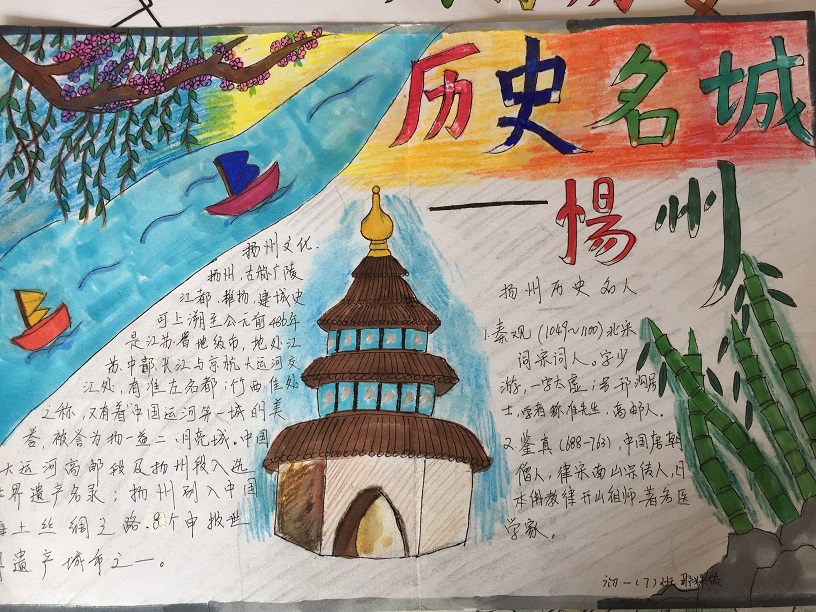 历史名城
——惕州
扬州文化.
扬州,古称广陵
江都、维扬,建城史
可上溯至公元前486年
是江苏省地级市,地处江
苏中部长江与京杭大运河交
江处,有淮左名都;竹西佳处
之称,又有着中国运河第一城的美
誉,被誉为扬一益二、月亮城。中国
大运河高邮段及扬州段入选
世界遗产名录;扬州列入中国
海上丝绸之路8个申报世
界遗产城市之一。
扬州历史名人
1.秦观(1049~1100)北宋
词宗词人。字少
游,一字太虚;号邗沟居
士,学者称淮先生,高邮人。
2.鉴真(688-763),中国唐朝
僧人,律宗南山宗传人,日
本佛教律开山祖师著名医
学家。
初一(7)班